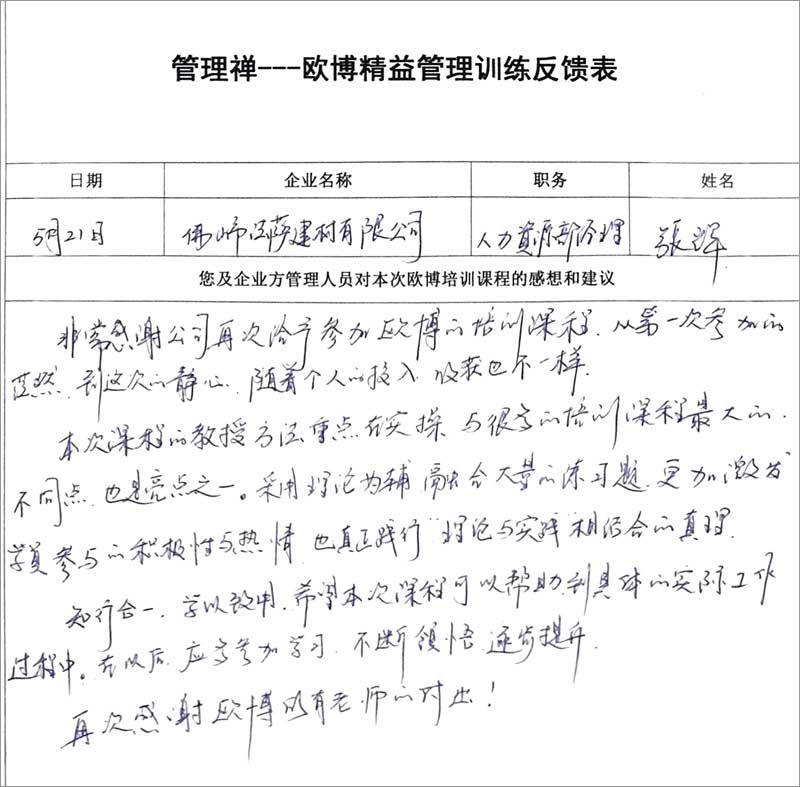 管理禅---欧博精益管理训练反馈表
日期 企业名称 职务 姓名
5月21日 佛山市法萨建材有限公司 人力资源部经理 張辉
您及企业方管理人员对本次欧博培训课程的感想和建议
非常感谢公司再次给予参加欧博的培训课程,从第一次参加的
茫然,到这次的静心,随着个人的投入,收获也不一样.
本次课程的教授方法重点在实操,与很多的培训课程最大的
不同点,也是亮点之一。采用理论为辅,融合大量的练习题,更加激发
学员参与的积极性与热情,也真正践行理论与实践相结合的真理.
知行合一,学以致用,希望本次课程可以帮助到具体的实际工作
过程中。在以后,应多参加学习,不断领悟,逐步提升.
再次感谢欧博所有老师的付出!